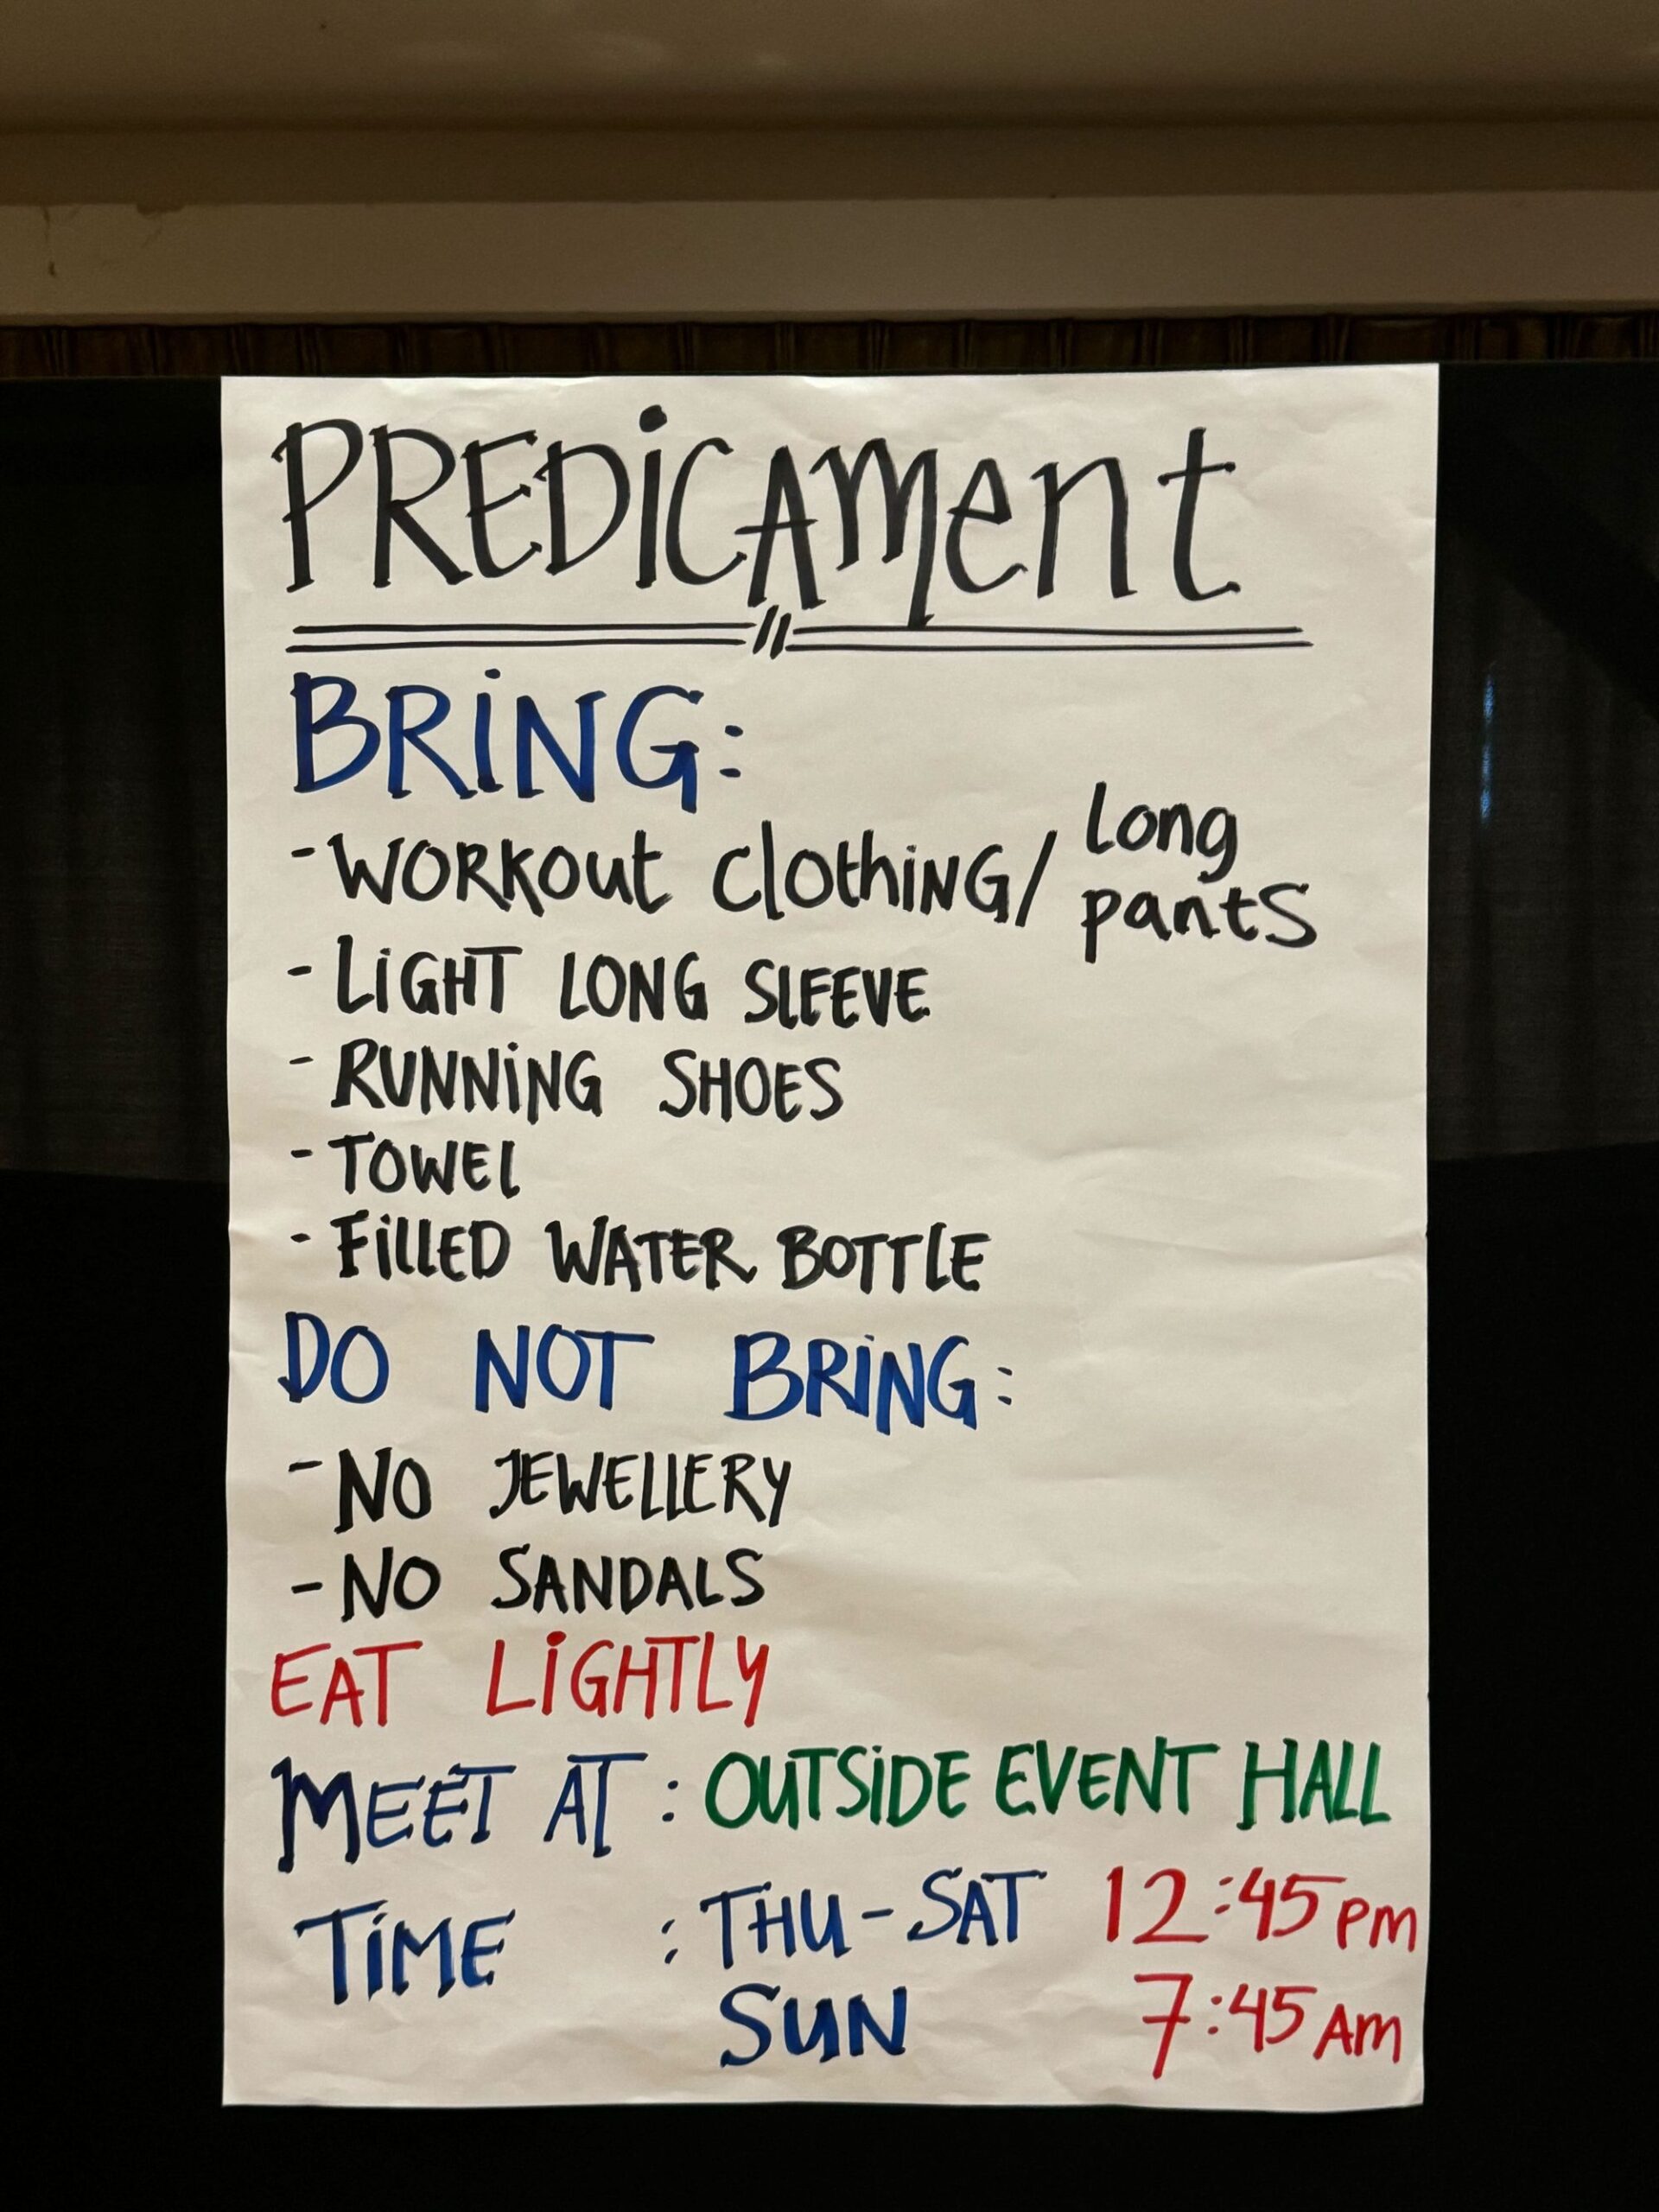 PREDiCAment
BRiNG:
- WORKout clothiNG/ long pantS
- LiGHT LONG SLEEVE
- RUNNiNG SHOES
- TOWEL
- FillED WATER BOTTLE
DO NOT BRiNG:
- NO JEWELLERY
- NO SANDALS
EAT LiGHTLY
MEET AT : OUTSiDE EVENT HALL
TiME : THU - SAT 12:45 pm
SUN 7:45 Am